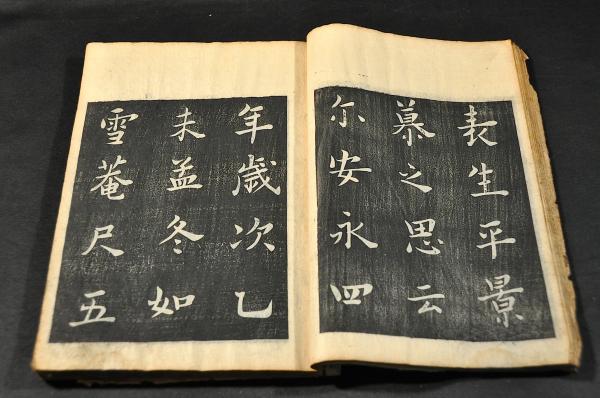 表生平景
慕之思云
尓安永四
年歳次乙
未孟冬如
雪菴尺五